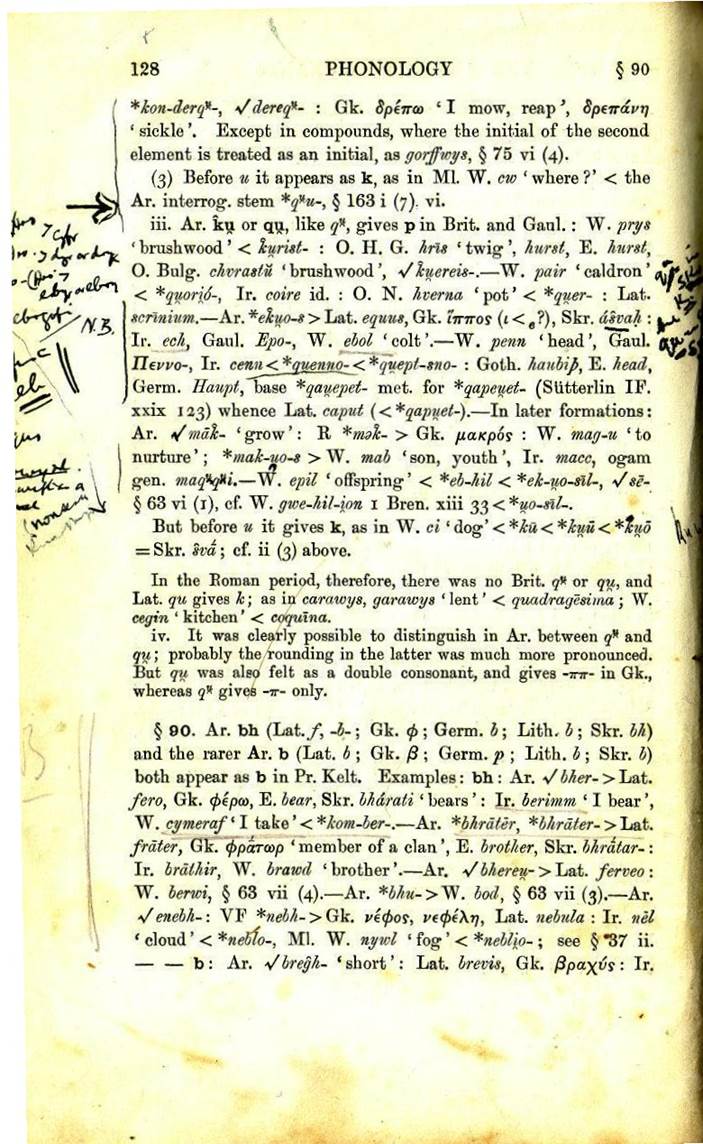 128 PHONOLOGY § 90
*kon-derqᵘ̯-, √dereqᵘ̯- : Gk. δρέπω ‘I mow, reap’, δρεπάνη
‘sickle’. Except in compounds, where the initial of the second
element is treated as an initial, as gorffwys, § 75 vi (4).
(3) Before u it appears as k, as in Ml. W. cw ‘where?’ < the
Ar. interrog. stem *qᵘ̯u-, § 163 i (7). vi.
iii. Ar. k̑u̯ or qu̯, like qᵘ̯, gives p in Brit. and Gaul. : W. prys
‘brushwood’ < k̑u̯rist- : O. H. G. hrīs ‘twig’, hurst, E. hurst,
O. Bulg. chvrastŭ ‘brushwood’, √k̑u̯ereis-.—W. pair ‘caldron’
< *qu̯ori̯ó-, Ir. coire id. : O. N. hverna ‘pot’ < *qu̯er- : Lat.
scrīnium.—Ar. *ek̑u̯o-s > Lat. equus, Gk. ἵππος (ι < ₑ?), Skr. áśvaḥ :
Ir. ech, Gaul. Epo-, W. ebol ‘colt’.—W. penn ‘head’, Gaul.
Πεννο-, Ir. cenn < *qu̯enno- < *qu̯ept-sno- : Goth. haubiþ, E. head,
Germ. Haupt, base *qau̯epet- met. for *qapeu̯et- (Sütterlin IF.
xxix 123) whence Lat. caput (< *qapu̯et-).—In later formations :
Ar. √māk̑- ‘grow’ : R *mək̑- > Gk. μακρός : W. mag-u ‘to
nurture’; *mak-u̯o-s > W. mab ‘son, youth’, Ir. macc, ogam
gen. maqᵘ̯qᵘ̯i.—W. epil ‘offspring’ < *eb-hil < *ek-u̯o-sīl-, √sē-
§ 63 vi (1), cf. W. gwe-hil-i̯on 1 Bren. xiii 33 < *u̯o-sīl-.
But before u it gives k, as in W. ci ‘dog’ < *kū < *ku̯ū < *k̑u̯ō
= Skr. śvā́; cf. ii (3) above.
In the Roman period, therefore, there was no Brit. qᵘ̯ or qu̯, and
Lat. qu gives k; as in carawys, garawys ‘lent’ < quadragēsima; W.
cegin ‘kitchen’ < coquīna.
iv. It was clearly possible to distinguish in Ar. between qᵘ̯ and
qu̯; probably the rounding in the latter was much more pronounced.
But qu̯ was also felt as a double consonant, and gives -ππ- in Gk.,
whereas qᵘ̯ gives -π- only.
§ 90. Ar. bh (Lat. f, -b-; Gk. φ; Germ. b; Lith. b; Skr. bh)
and the rarer Ar. b (Lat. b; Gk. β; Germ. p; Lith. b; Skr. b)
both appear as b in Pr. Kelt. Examples: bh: Ar. √bher- > Lat.
fero, Gk. φέρω, E. bear, Skr. bhárati ‘bears’ : Ir. berimm ‘I bear’,
W. cymeraf ‘I take’ < *kom-ber-.—Ar. *bhrātēr, *bhrāter- > Lat.
frāter, Gk. φρᾱ́τωρ ‘member of a clan’, E. brother, Skr. bhrā́tar- :
Ir. brāthir, W. brawd ‘brother’.—Ar. √bhereu̯- > Lat. ferveo :
W. berwi, § 63 vii (4).—Ar. *bhu- > W. bod, § 63 vii (3).—Ar.
√enebh- : VF *nebh- > Gk. νέφος, νεφέλη, Lat. nebula : Ir. nēl
‘cloud’ < *neblo-, Ml. W. nywl ‘fog’ < *nebli̯o-; see § 37 ii.
— — b : Ar. √breĝh- ‘short’ : Lat. brevis, Gk. βραχύς : Ir.
N.B.